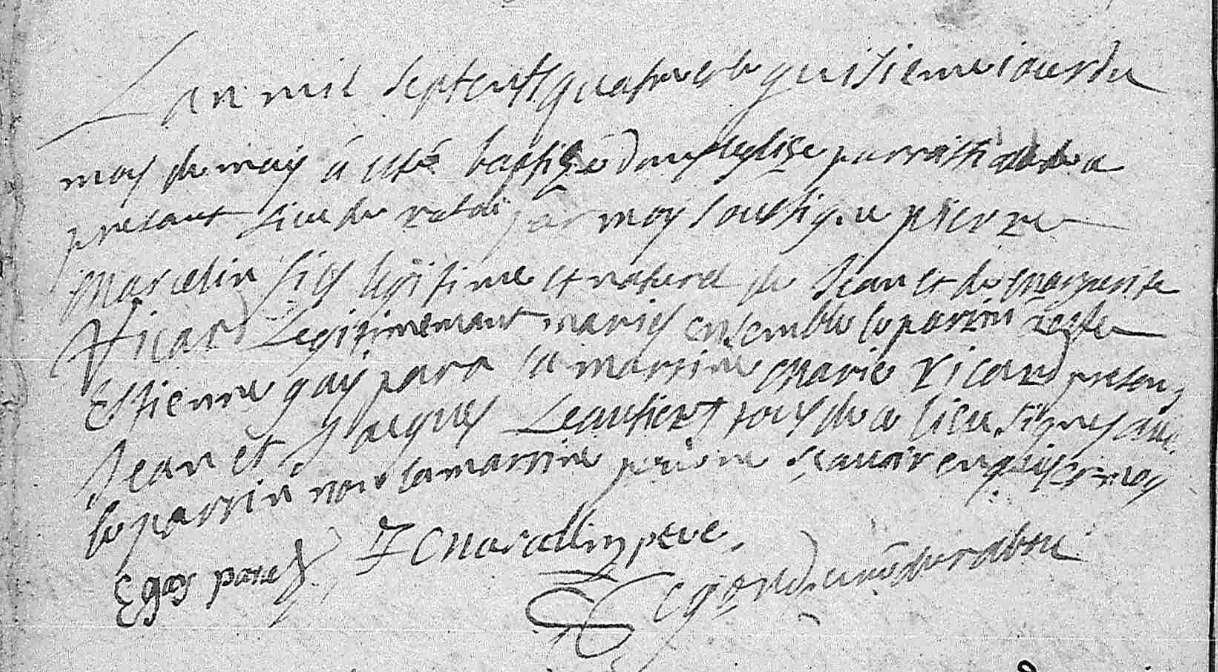 Lan mil septents quatre et le quisieme iour du
moy de may á esté baptisé dans leglise parroissi de a
presant lieu du par moy soussigne pierre
Marcelin fils legitime et naturel de Jean et de marguerite
Ricard Legitimemant maries ensemble le parrin
Estienne gay para la marrine Marie ricard presans
Jean et Jacques Leautiert tous de ce lieu signes avec
le parrin non la marrine pour ne scavoir enquis et moy
E gay para J Marcellin pere